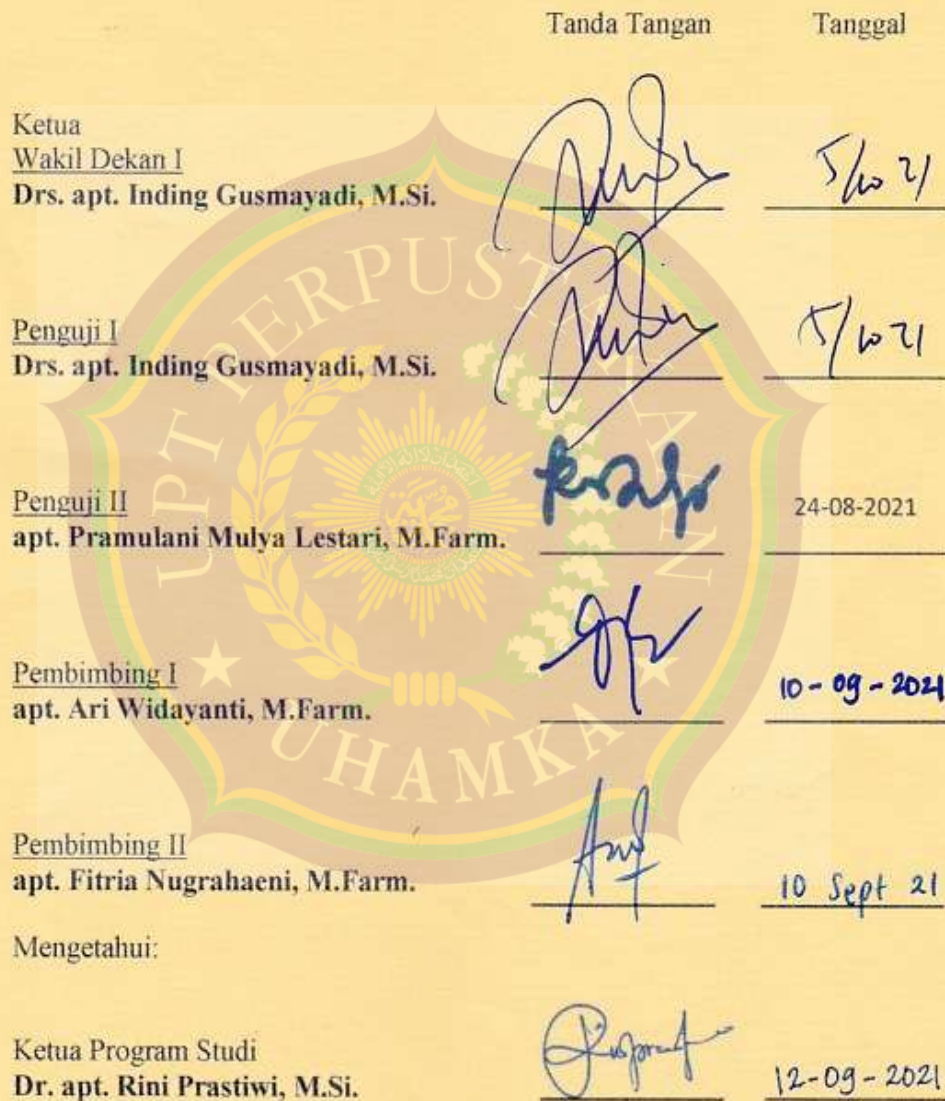 Tanda Tangan Tanggal
Ketua
Wakil Dekan I
Drs. apt. Inding Gusmayadi, M.Si. 5/10 21
Penguji I
Drs. apt. Inding Gusmayadi, M.Si. 5/10 21
Penguji II
apt. Pramulani Mulya Lestari, M.Farm. 24-08-2021
Pembimbing I
apt. Ari Widayanti, M.Farm. 10-09-2021
Pembimbing II
apt. Fitria Nugrahaeni, M.Farm. 10 Sept 21
Mengetahui:
Ketua Program Studi
Dr. apt. Rini Prastiwi, M.Si. 12-09-2021
UPT PERPUSTAKAAN
UHAMKA